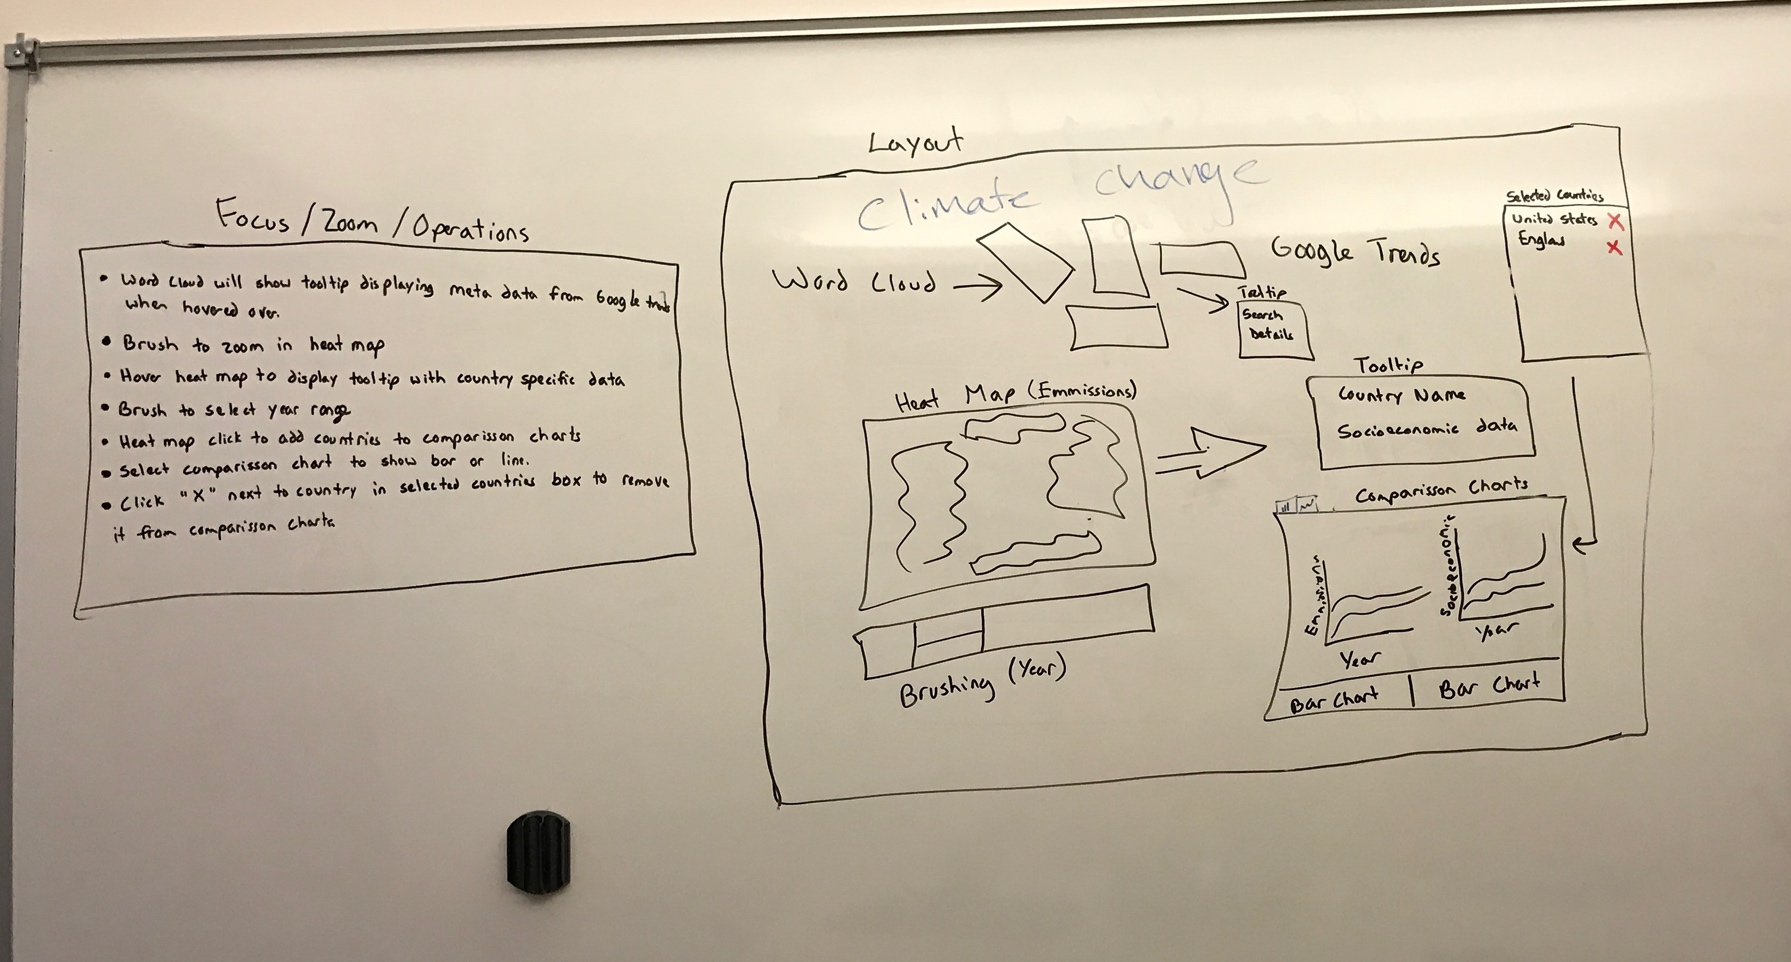 Focus / Zoom / Operations
• Word Cloud will show tooltip displaying meta data from Google trends
when hovered over.
• Brush to zoom in heat map
• Hover heat map to display tooltip with country specific data
• Brush to select year range
• Heat map click to add countries to comparisson charts
• Select comparisson chart to show bar or line.
• Click "X" next to country in selected countries box to remove
it from comparisson charts
Layout
Climate change
Word Cloud
Google Trends
Tooltip
Search
Details
Selected Countries
United States X
England X
Heat Map (Emmissions)
Brushing (Year)
Tooltip
Country Name
Socioeconomic data
Comparisson Charts
Emmissions
Year
Socioeconomic
Year
Bar Chart
Bar Chart